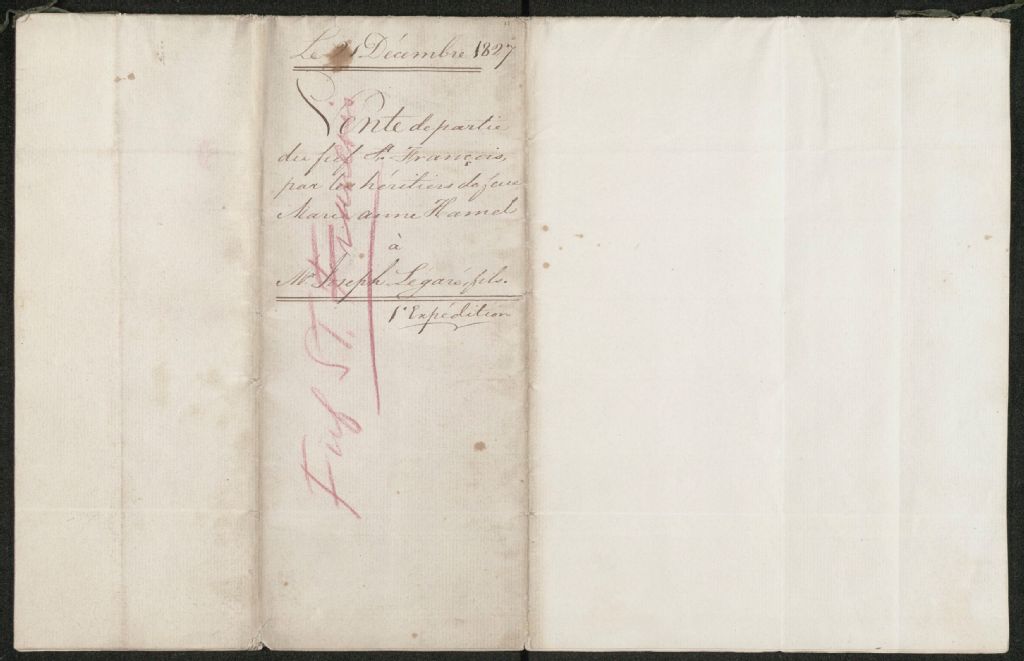 Le 21 Décembre 1827
Vente de partie
du fief St. François,
par les héritiers de feue
Marie anne Hamel
à
Mr. Joseph Légaré, fils.
1e. Expédition
Fief St. Francois